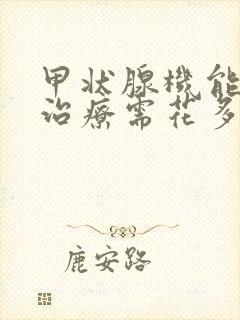 甲状腺機能
治療需花多
鹿安路